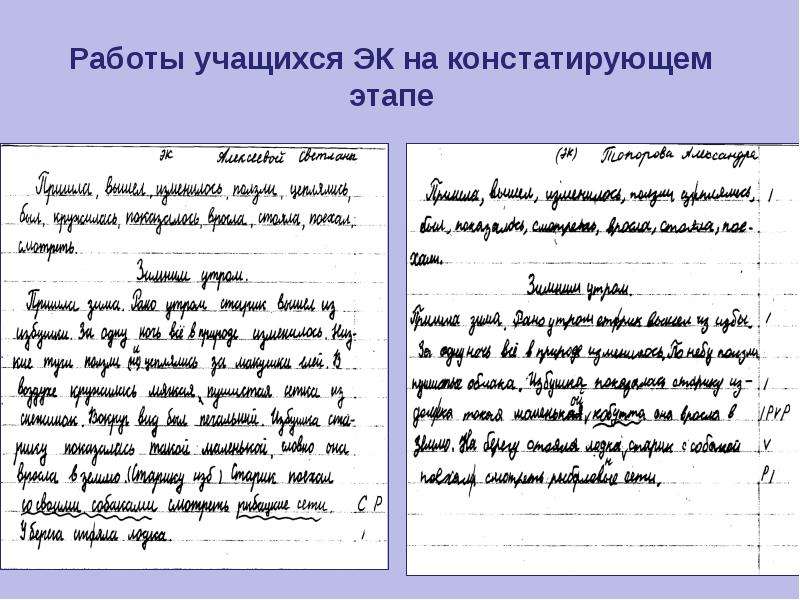 Работы учащихся ЭК на констатирующем
этапе
ЭК Алексеевой Светланы
Пришла, вышел, изменилось, ползли, цеплялись,
был, кружилась, показалось, вросла, стояла, поехал,
смотреть.
Зимним утром.
Пришла зима. Рано утром старик вышел из
избушки. За одну ночь всё в природе изменилось. Низ-
кие тучи ползли и цеплялись за макушки елей. В
воздухе кружилась мягкая, пушистая сетка из
снежинок. Вокруг вид был печальний. Избушка ста-
рику показалась такой маленькой, словно она
вросла в землю. (Старику изб) Старик поехал
со своими собаками смотреть рыбацкие сети. С Р
У берега стояла лодка. I
(ЭК) Топорова Александра
Пришла, вышел, изменилось, ползли цеплялись, I
был, показалось, смотреть, вросла, стояла, пое-
хали.
Зимним утром.
Пришла зима. Рано утром старик вышел из избы. I
За одну ночь всё в природе изменилось. По небу ползли
пушистые облака. Избушка показалась старику из- I
далека такой маленькой, кобутта она вросла в I Р V Р
землю. На берегу стояла лодка, старик с собакой V
поехали смотреть рыболовные сети. Р I